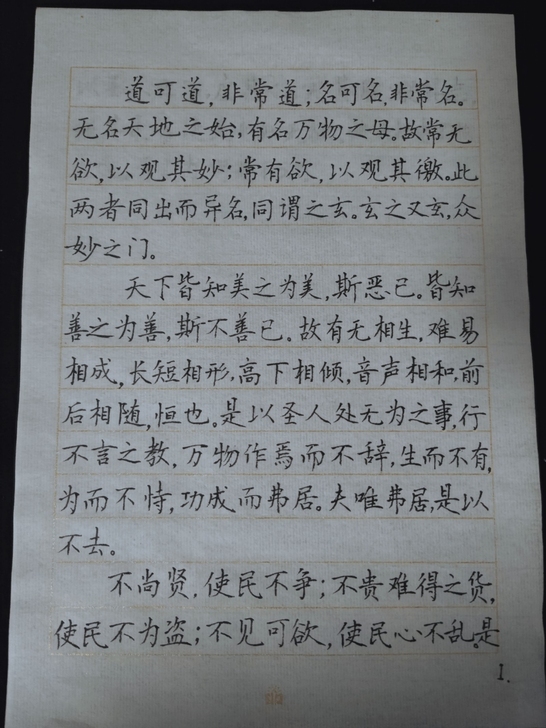 道可道，非常道；名可名，非常名。
无名天地之始，有名万物之母。故常无
欲，以观其妙；常有欲，以观其徼。此
两者同出而异名，同谓之玄。玄之又玄，众
妙之门。
天下皆知美之为美，斯恶已。皆知
善之为善，斯不善已。故有无相生，难易
相成，长短相形，高下相倾，音声相和，前
后相随，恒也。是以圣人处无为之事，行
不言之教，万物作焉而不辞，生而不有，
为而不恃，功成而弗居。夫唯弗居，是以
不去。
不尚贤，使民不争；不贵难得之货，
使民不为盗；不见可欲，使民心不乱。是
1.